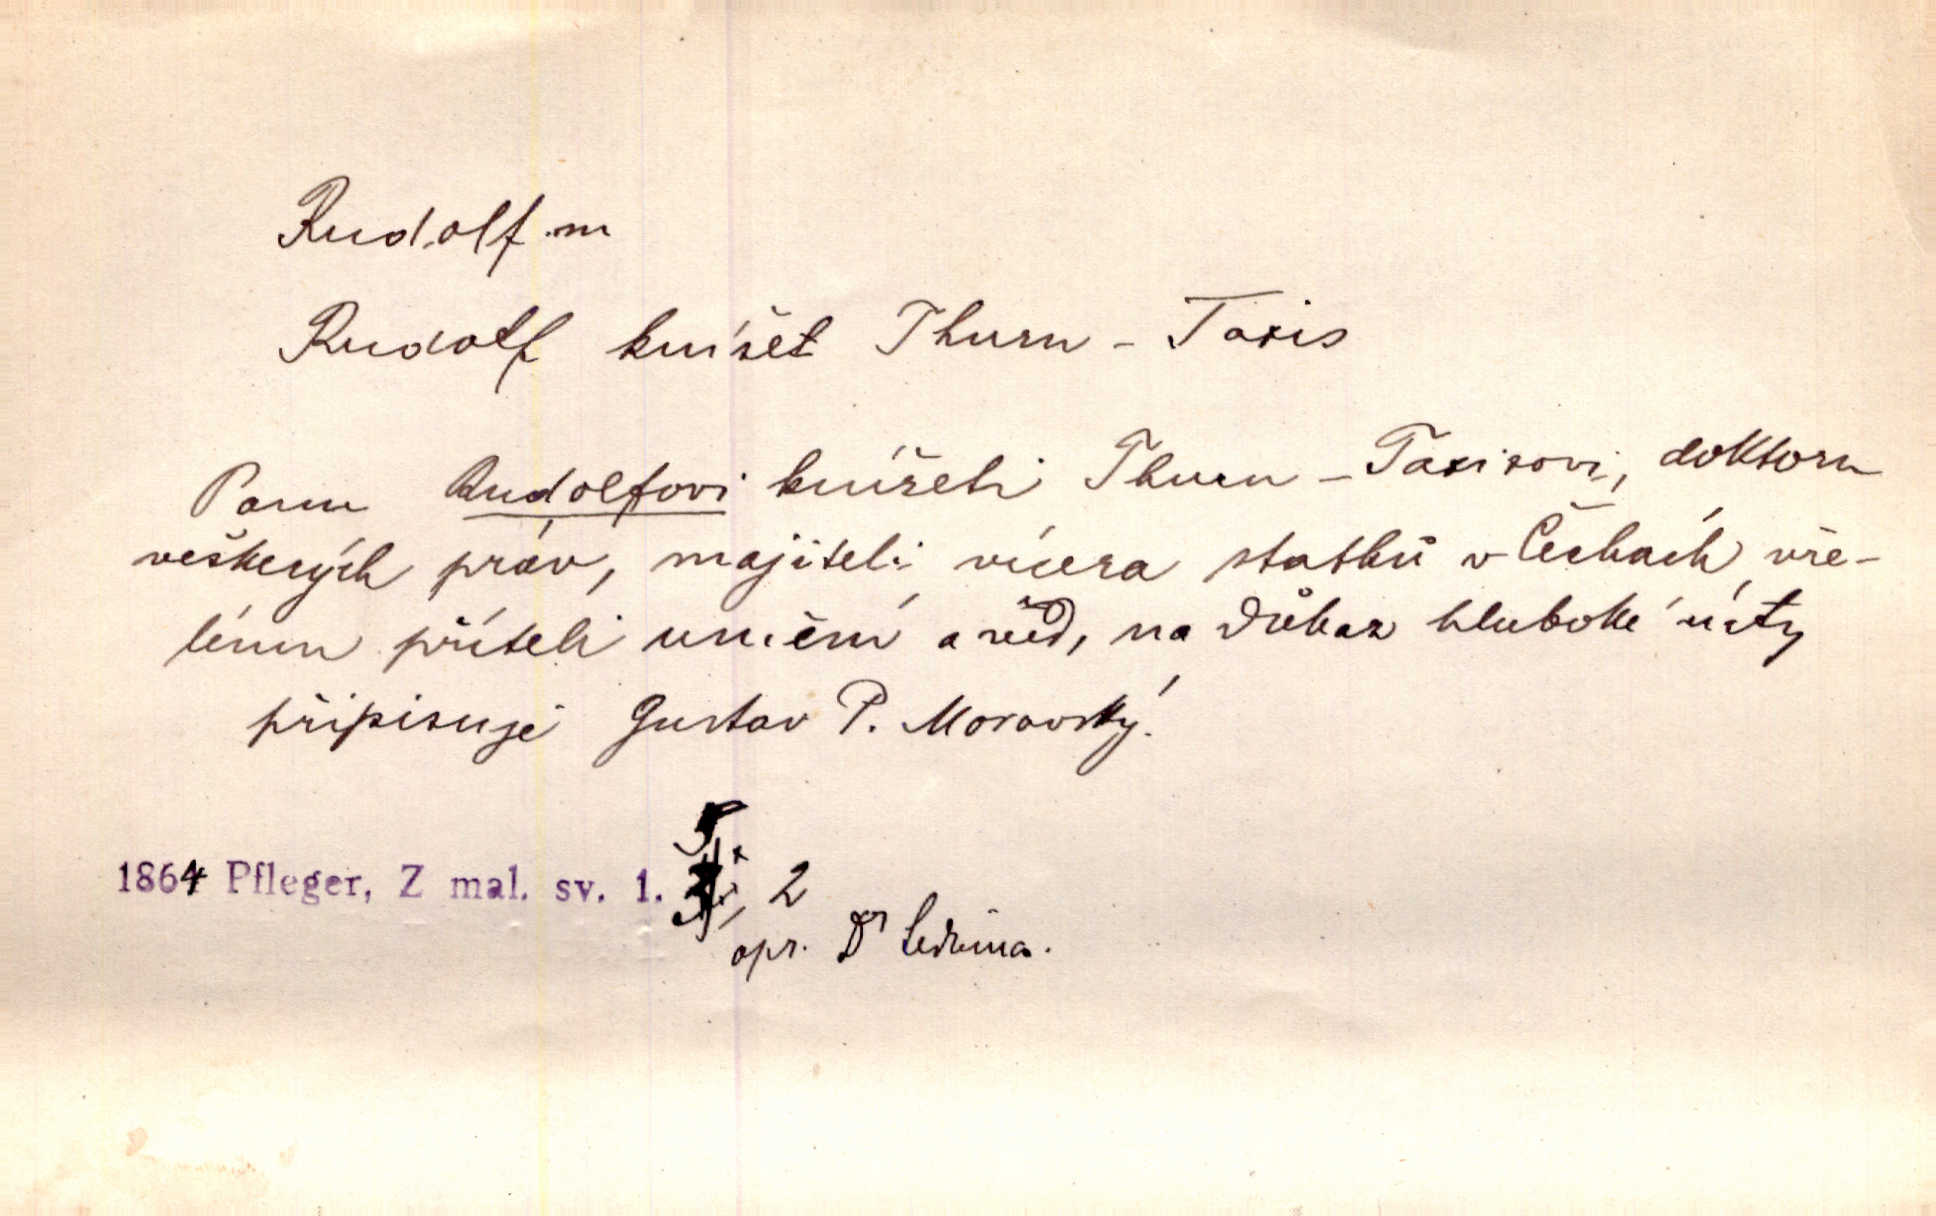 Rudolf m
Rudolf knížet Thurn - Taxis
Panu Rudolfovi knížeti Thurn - Taxisovi, doktoru
veškerých práv, majiteli vícera statků v Čechách vře-
lému příteli umění a věd, na důkaz hluboké úcty
připisuje Gustav P. Moravský.
1864 Pfleger, Z mal. sv. 1. 5, 2
opr. Dr